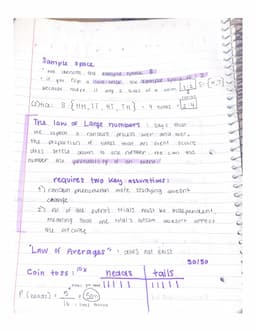 Sample space
• we denote the sample space S
• if you flip a coin once, the sample space is 2
because there is only 2 sides of a coin 1:2 S={H,T}
coin(2): S {HH, TT, HT, TH} = 4 total 2:4
The law of Large numbers: says that
we repeat a random process over and over,
the proportion of times that an event occurs
does settle down to one number. We call this
number the probability of an event.
requires two key assumptions:
1) random phenomenon we're studying doesn't
change
2) the events trials must be independent,
meaning that one trial's outcome doesn't affect
the outcome
"Law of Averages": does not exist
50/50
Coin toss: 10x heads tails
P(heads): 5 50%